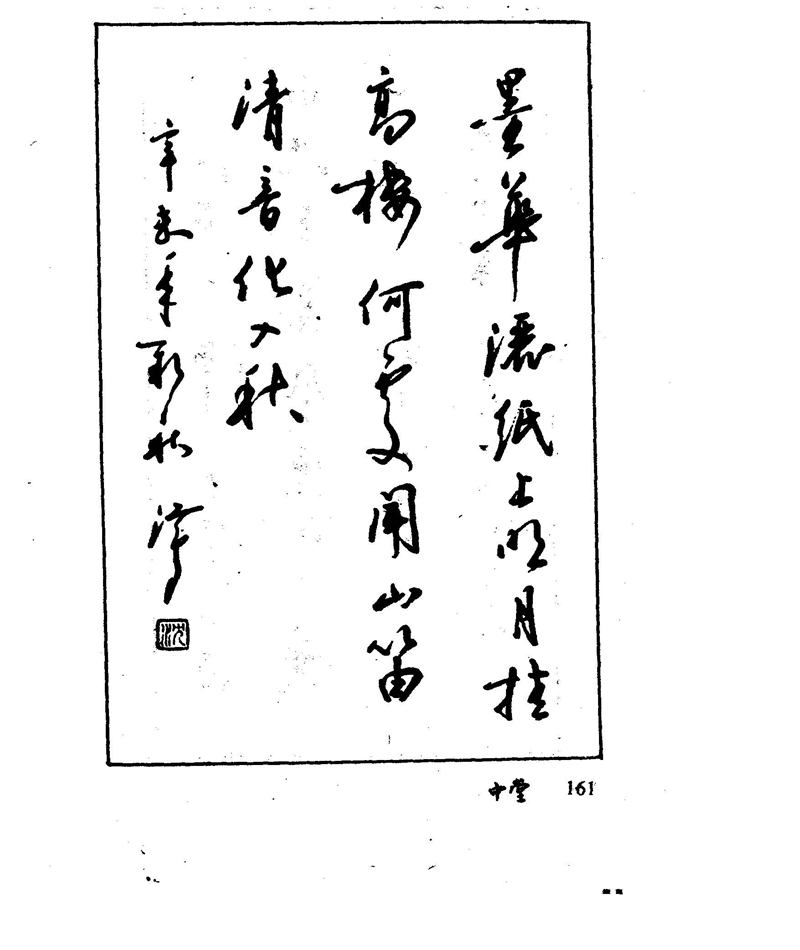 墨華灑紙上明月挂
高樓何處聞山笛
清音化入秋
辛未年新秋
沈
中堂 161